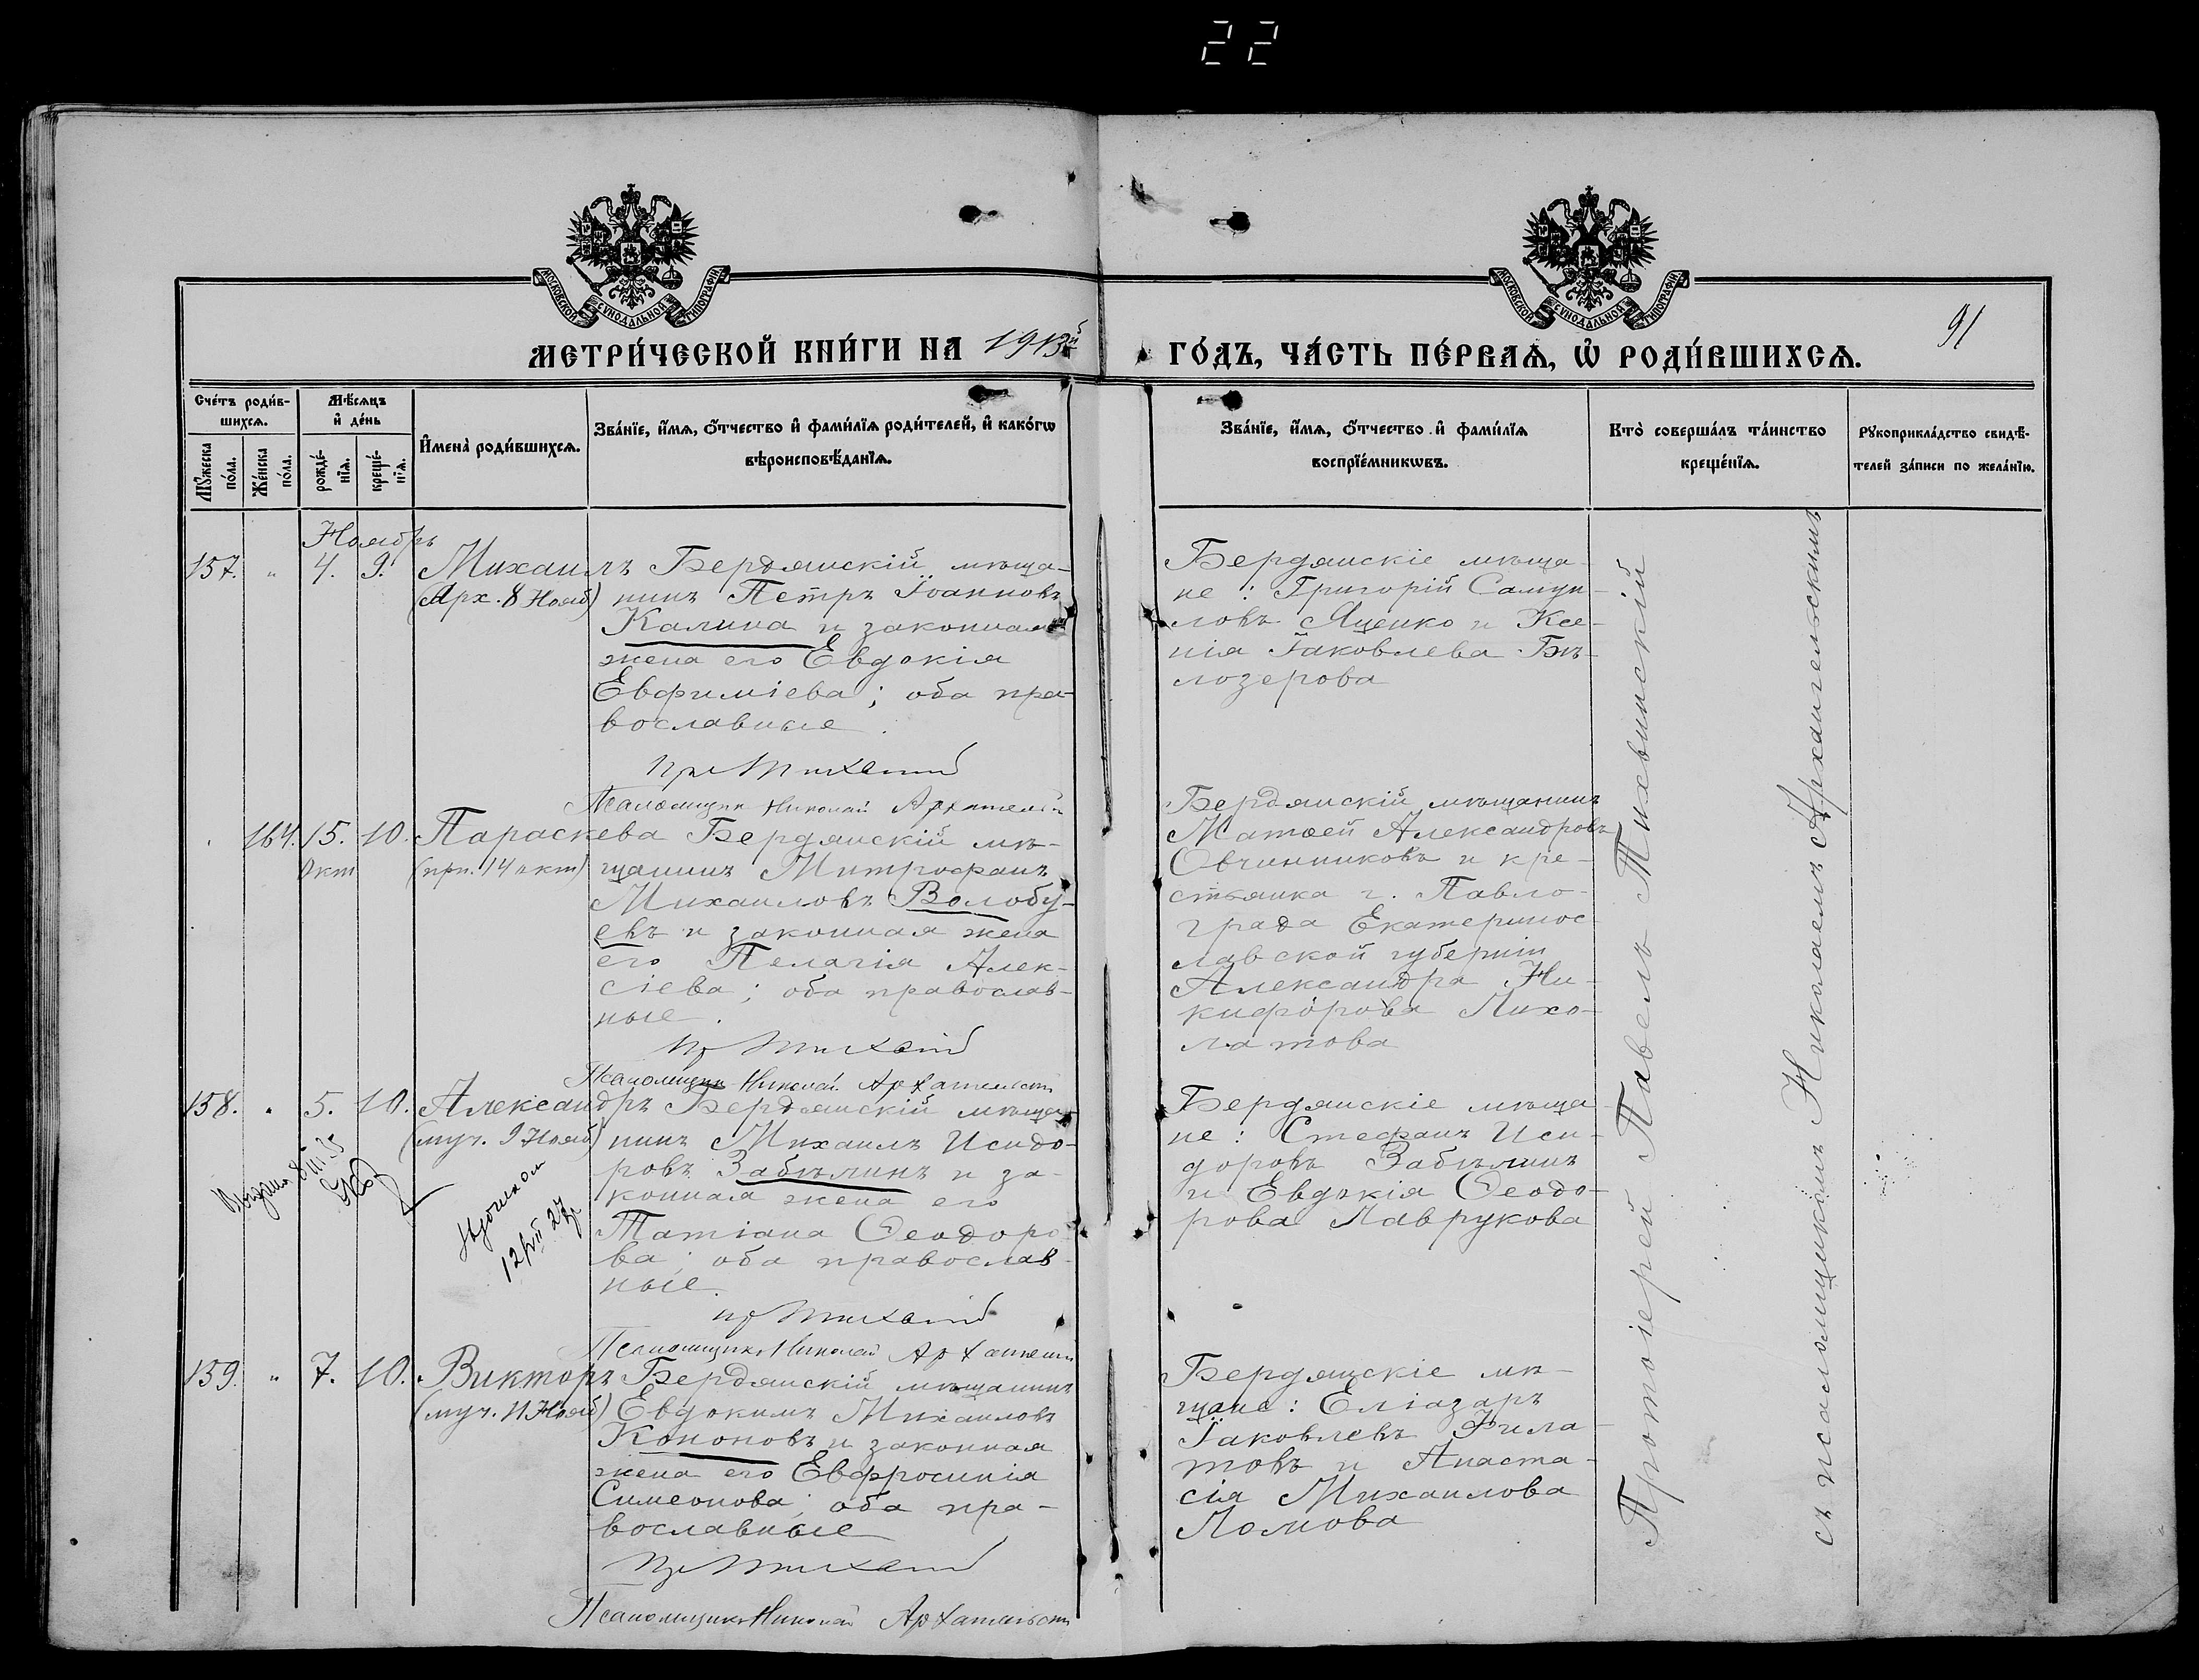 22
МОСКОВСКОЙ СѴНОДАЛЬНОЙ ТИПОГРАФІИ
МОСКОВСКОЙ СѴНОДАЛЬНОЙ ТИПОГРАФІИ
91
МЕТРИ́ЧЕСКОЙ КНИ́ГИ НА 1913й ГО́ДЪ, ЧА́СТЬ ПЕ́РВАѦ, Ѽ РОДИ́ВШИХСѦ.
Сче́тъ роди́в-
шихсѧ.
Мꙋ́жеска по́ла.
Же́нска по́ла.
Мѣ́сѧцъ
и҆ де́нь
рожде́-
нїѧ.
креще́-
нїѧ.
И҆мена̀ роди́вшихсѧ.
Зва́нїе, и҆́мѧ, ѻ҆́тчество и҆ фами́лїѧ роди́телей, и҆ како́гѡ
вѣроисповѣ́данїѧ.
Зва́нїе, и҆́мѧ, ѻ҆́тчество и҆ фами́лїѧ
воспрїе́мникѡвъ.
Кто̀ соверша́лъ та́инство
креще́нїѧ.
Рꙋкоприкла́дство свидѣ́-
телей за́писи по жела́нїю.
Ноябрь
157. " 4. 9. Михаилъ
(Арх. 8 Нояб)
Бердянскій мѣща-
нинъ Петръ Іоанновъ
Калина и законная
жена его Евдокія
Евфиміева; оба пра-
вославные.
Псаломщикъ Николай Архангельскій
Бердянскіе мѣща-
не: Григорій Самуи-
ловъ Яценко и Ксе-
нія Іаковлева Бѣ-
лозерова
164. 15. 10. Параскева
Окт (прп. 14 окт)
Бердянскій мѣ-
щанинъ Митрофанъ
Михаиловъ Волобу-
евъ и законная жена
его Пелагія Алек-
сіева; оба православ-
ные.
Псаломщикъ Николай Архангельскій
Бердянскій мѣщанинъ
Матѳей Александровъ
Овчинниковъ и кре-
стьянка г. Павло-
града Екатеринос-
лавской губерніи
Александра Ни-
кифорова Лихо-
латова
158. " 5. 10. Александръ
(муч. 9 Нояб)
Бердянскій мѣща-
нинъ Михаилъ Исидо-
ровъ Забѣлинъ и за-
конная жена его
Татіана Ѳеодоро-
ва; оба православ-
ные.
Псаломщикъ Николай Архангельскій
Бердянскіе мѣща-
не: Стефанъ Иси-
доровъ Забѣлинъ
и Евдокія Ѳеодо-
рова Лаврукова
12/VII 27
159. " 7. 10. Викторъ
(муч. 11 Нояб)
Бердянскій мѣщанинъ
Евдокимъ Михаиловъ
Кононовъ и законная
жена его Евфросинія
Симеонова; оба пра-
вославные
Псаломщикъ Николай Архангельскій
Бердянскіе мѣ-
щане: Еліазаръ
Іаковлевъ Фила-
товъ и Анаста-
сія Михаилова
Ломова
Протоіерей Павелъ Тихвинскій
съ псаломщикомъ Николаемъ Архангельскимъ